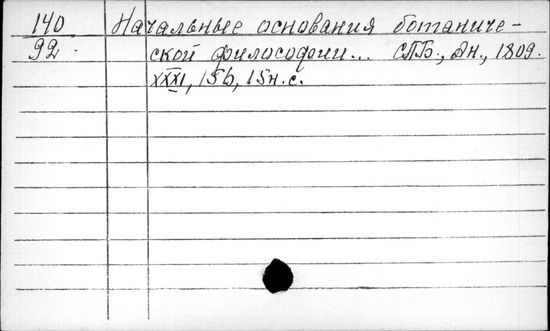 140 Начальные основания ботаниче-
92. ской философии... СПБ., Ан., 1809.
XXXI, 156, 15н.с.